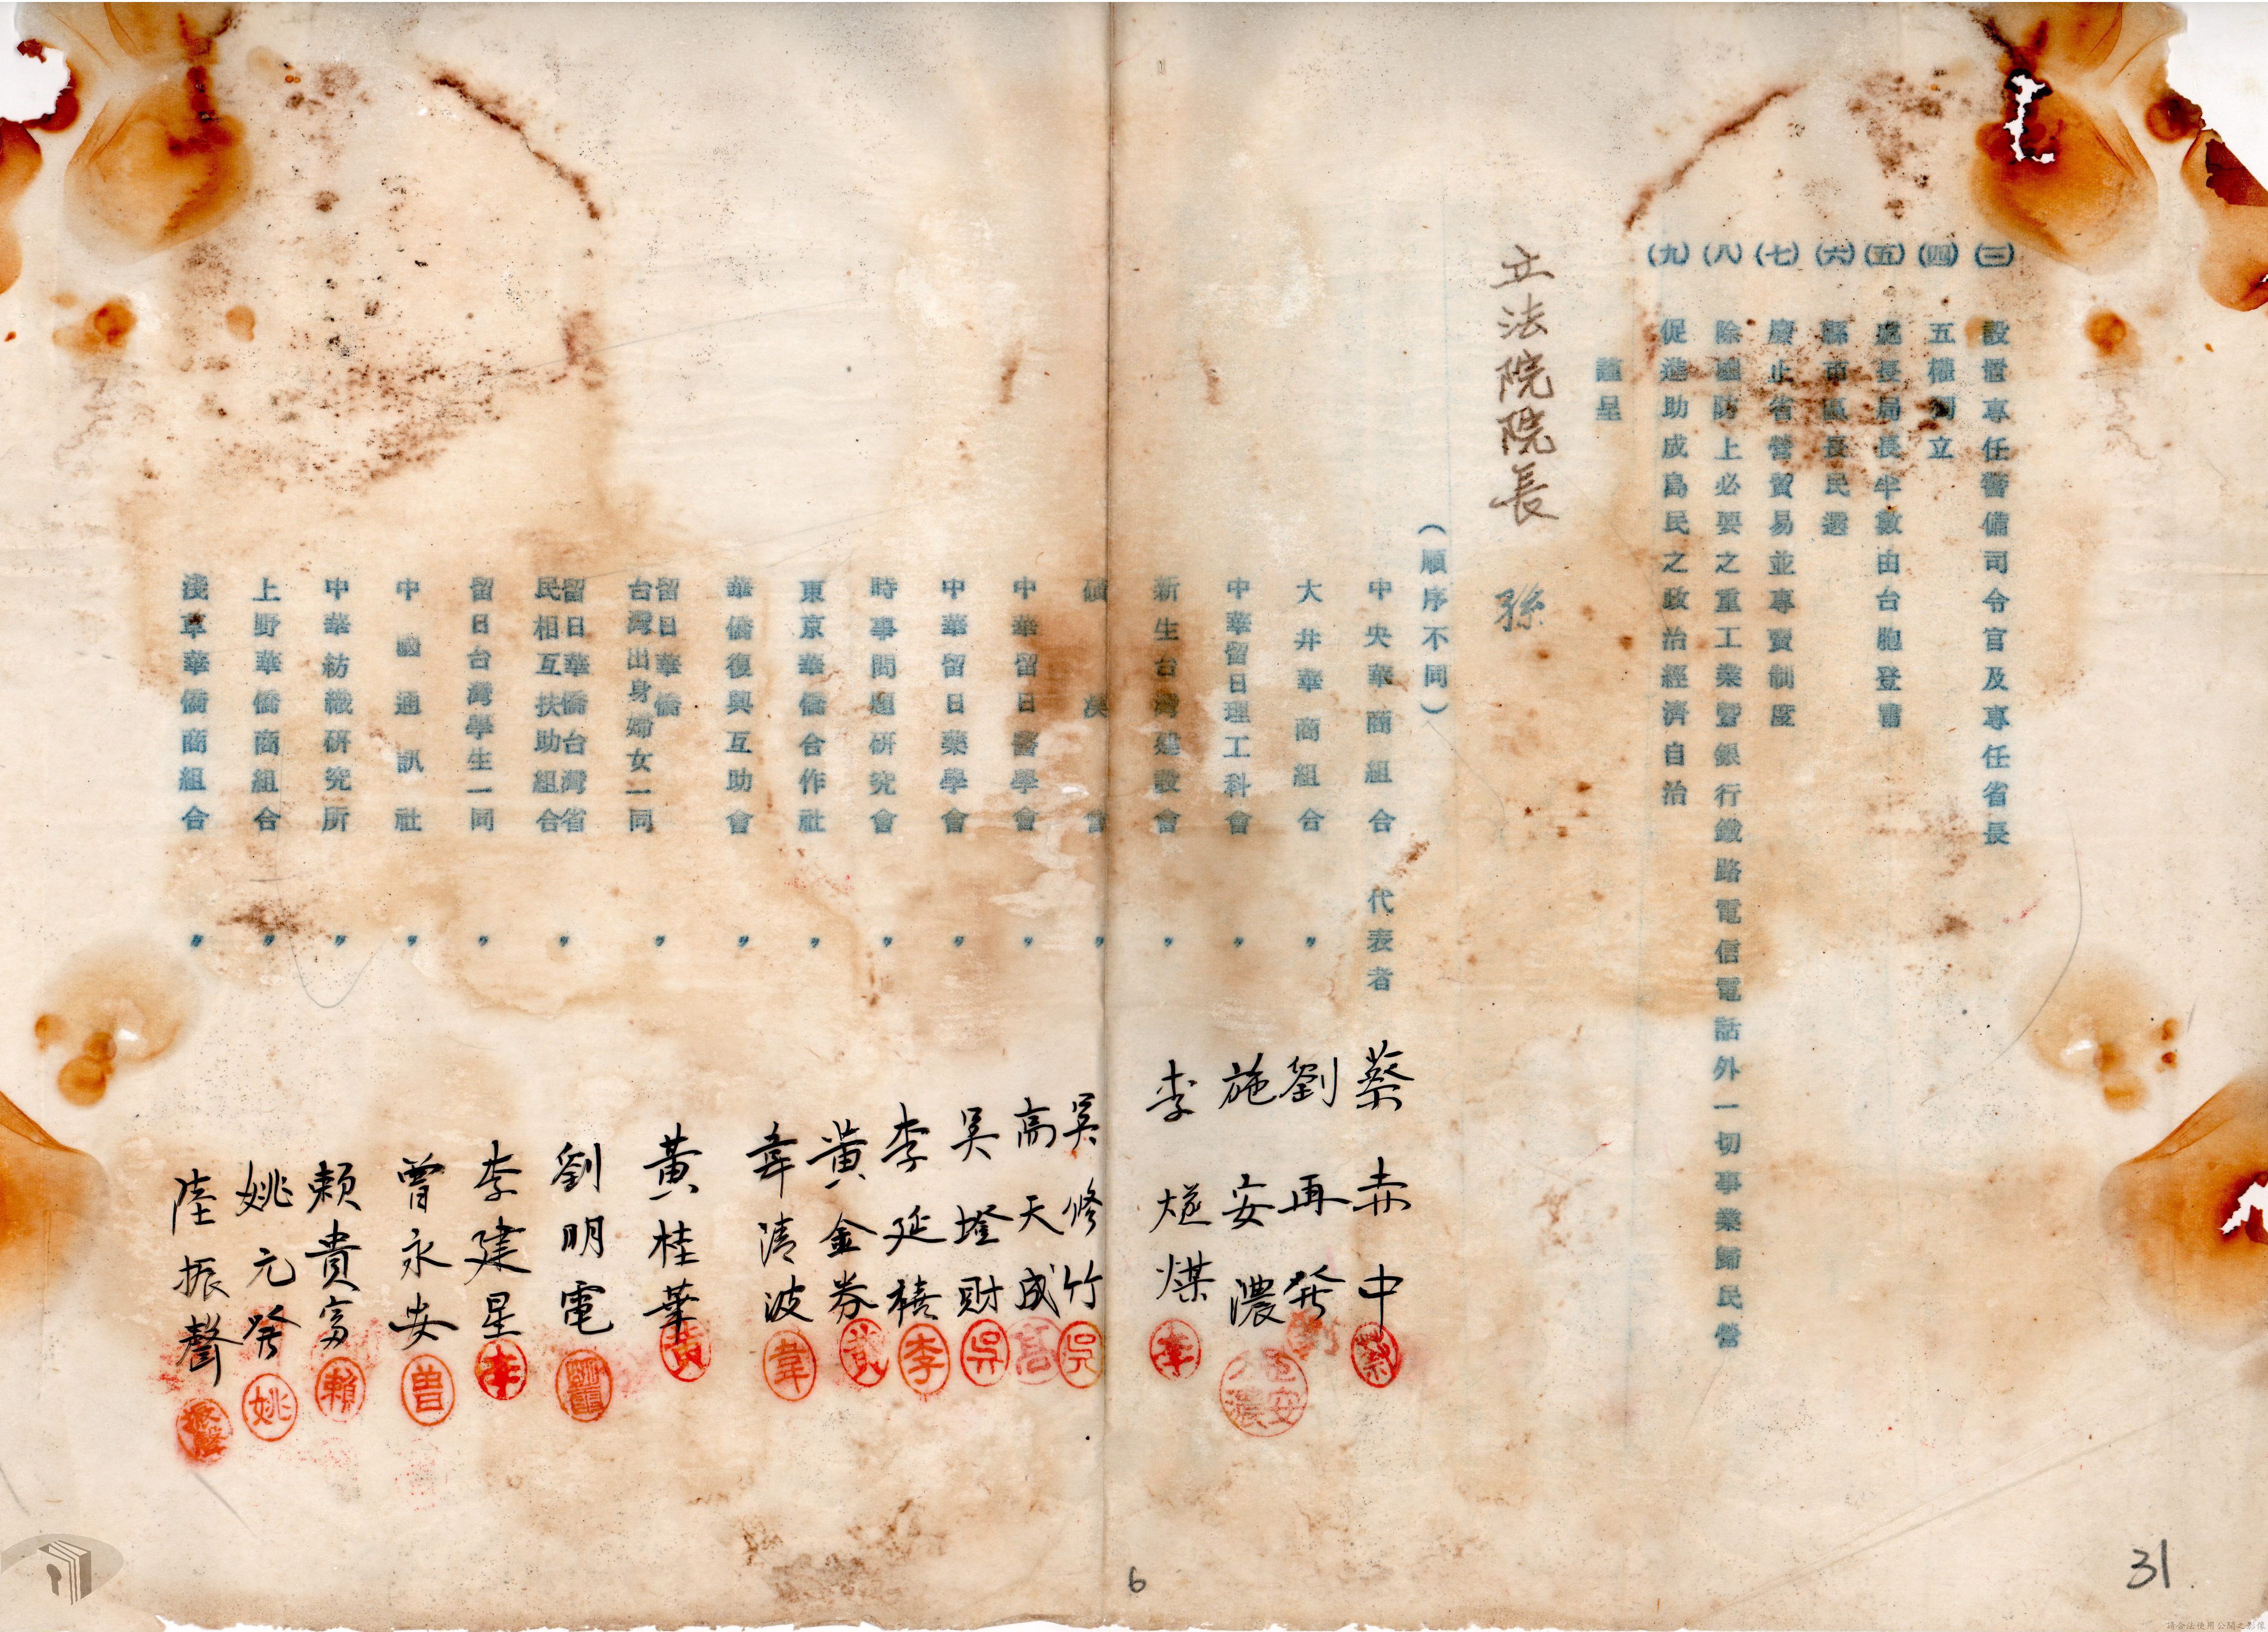 (三) 設置專任警備司令官及專任省長
(四) 五權獨立
(五) 處長局長半數由台胞登書
(六) 縣市區長民選
(七) 廢止省營貿易並專賣制度
(八) 除國防上必要之重工業暨銀行鐵路電信電話外一切事業歸民營
(九) 促進助成島民之政治經濟自治
謹呈
立法院院長 孫
(順序不同)
中央華商組合 代表者 蔡赤中
大井華商組合 〃 劉再発
中華留日理工科會 〃 施安濃
新生台灣建設會 〃 李燧煤
會 〃 吳修竹
中華留日醫學會 〃 高天成
中華留日藥學會 〃 吳墱財
時事問題研究會 〃 李延禧
東京華僑合作社 〃 黃金券
華僑復興互助會 〃 韋清波
留日華僑
台灣出身婦女一同 〃 黃桂華
留日華僑台灣省
民相互扶助組合 〃 劉明電
留日台灣學生一同 〃 李建星
中國通訊社 〃 曾永安
中華紡織研究所 〃 賴貴富
上野華僑商組合 〃 姚元発
淺草華僑商組合 〃 陸振聲
蔡
李
吳
高
吳
李
黃
韋
黃
李
曽
賴
姚
6
31